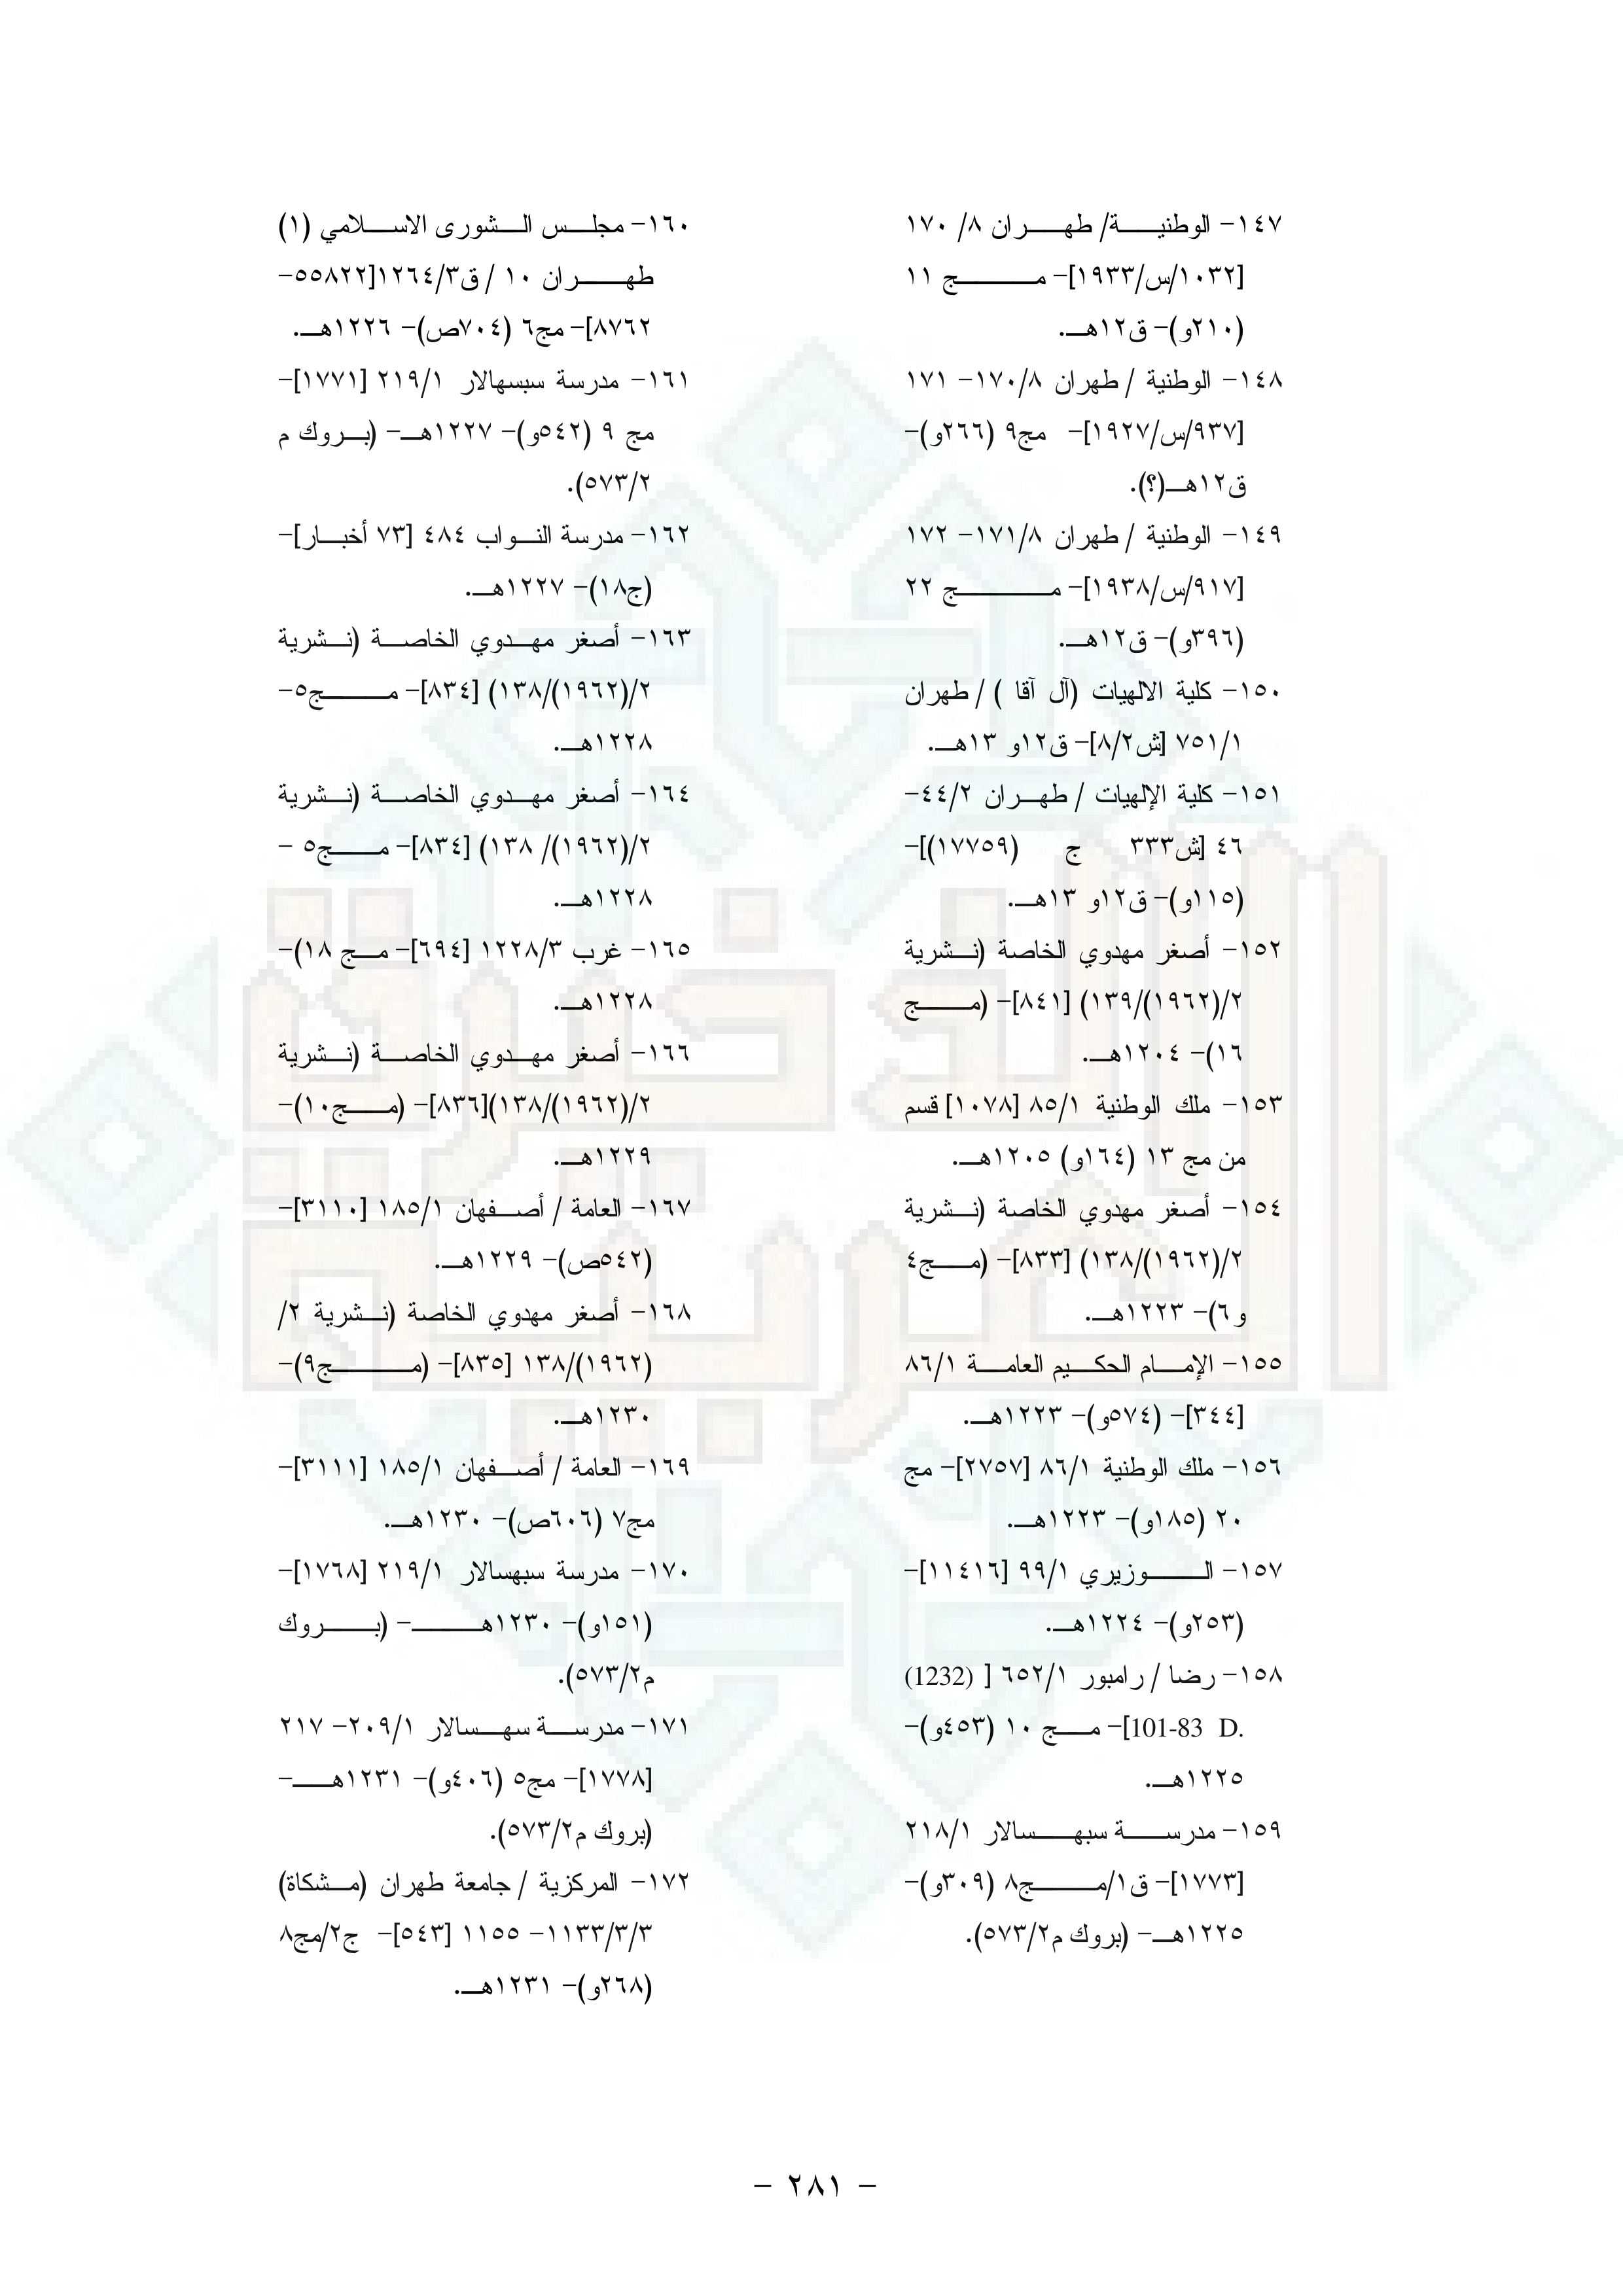 ١٤٧- الوطنية/ طهران ٨/ ١٧٠
[١٠٣٢/س/١٩٣٣]- مج ١١
(٢١٠و)- ق١٢هـ.
١٤٨- الوطنية / طهران ١٧٠/٨- ١٧١
[٩٣٧/س/١٩٢٧]- مج٩ (٢٦٦و)-
ق١٢هـ(؟).
١٤٩- الوطنية / طهران ١٧١/٨- ١٧٢
[٩١٧/س/١٩٣٨]- مج ٢٢
(٣٩٦و)- ق١٢هـ.
١٥٠- كلية الالهيات (آل آقا ) / طهران
٧٥١/١ [ش٨/٢]- ق١٢و ١٣هـ.
١٥١- كلية الإلهيات / طهران ٤٤/٢-
٤٦ [ش٣٣٣ ج (١٧٧٥٩)]-
(١١٥و)- ق١٢و ١٣هـ.
١٥٢- أصغر مهدوي الخاصة (نشرية
٢/(١٩٦٢)/١٣٩) [٨٤١]- (مج
١٦)- ١٢٠٤هـ.
١٥٣- ملك الوطنية ٨٥/١ [١٠٧٨] قسم
من مج ١٣ (١٦٤و) ١٢٠٥هـ.
١٥٤- أصغر مهدوي الخاصة (نشرية
٢/(١٩٦٢)/١٣٨) [٨٣٣]- (مج٤
و٦)- ١٢٢٣هـ.
١٥٥- الإمام الحكيم العامة ٨٦/١
[٣٤٤]- (٥٧٤و)- ١٢٢٣هـ.
١٥٦- ملك الوطنية ٨٦/١ [٢٧٥٧]- مج
٢٠ (١٨٥و)- ١٢٢٣هـ.
١٥٧- الوزيري ٩٩/١ [١١٤١٦]-
(٢٥٣و)- ١٢٢٤هـ.
١٥٨- رضا / رامبور ٦٥٢/١ [ (1232)
101-83 D.]- مج ١٠ (٤٥٣و)-
١٢٢٥هـ.
١٥٩- مدرسة سبهسالار ٢١٨/١
[١٧٧٣]- ق١/مج٨ (٣٠٩و)-
١٢٢٥هـ- (بروك م٥٧٣/٢).
١٦٠- مجلس الشورى الاسلامي (١)
طهران ١٠ / ق١٢٦٤/٣[٥٥٨٢٢-
٨٧٦٢]- مج٦ (٧٠٤ص)- ١٢٢٦هـ.
١٦١- مدرسة سبسهالار ٢١٩/١ [١٧٧١]-
مج ٩ (٥٤٢و)- ١٢٢٧هـ- (بروك م
٥٧٣/٢).
١٦٢- مدرسة النواب ٤٨٤ [٧٣ أخبار]-
(ج١٨)- ١٢٢٧هـ.
١٦٣- أصغر مهدوي الخاصة (نشرية
٢/(١٩٦٢)/١٣٨) [٨٣٤]- مج٥-
١٢٢٨هـ.
١٦٤- أصغر مهدوي الخاصة (نشرية
٢/(١٩٦٢)/ ١٣٨) [٨٣٤]- مج٥ -
١٢٢٨هـ.
١٦٥- غرب ١٢٢٨/٣ [٦٩٤]- مج ١٨)-
١٢٢٨هـ.
١٦٦- أصغر مهدوي الخاصة (نشرية
٢/(١٩٦٢)/١٣٨)[٨٣٦]- (مج١٠)-
١٢٢٩هـ.
١٦٧- العامة / أصفهان ١٨٥/١ [٣١١٠]-
(٥٤٢ص)- ١٢٢٩هـ.
١٦٨- أصغر مهدوي الخاصة (نشرية ٢/
(١٩٦٢)/١٣٨ [٨٣٥]- (مج٩)-
١٢٣٠هـ.
١٦٩- العامة / أصفهان ١٨٥/١ [٣١١١]-
مج٧ (٦٠٦ص)- ١٢٣٠هـ.
١٧٠- مدرسة سبهسالار ٢١٩/١ [١٧٦٨]-
(١٥١و)- ١٢٣٠هـ- (بروك
م٥٧٣/٢).
١٧١- مدرسة سهسالار ٢٠٩/١- ٢١٧
[١٧٧٨]- مج٥ (٤٠٦و)- ١٢٣١هـ-
(بروك م٥٧٣/٢).
١٧٢- المركزية / جامعة طهران (مشكاة)
١١٣٣/٣/٣- ١١٥٥ [٥٤٣]- ج٢/مج٨
(٢٦٨و)- ١٢٣١هـ.
- ٢٨١ -